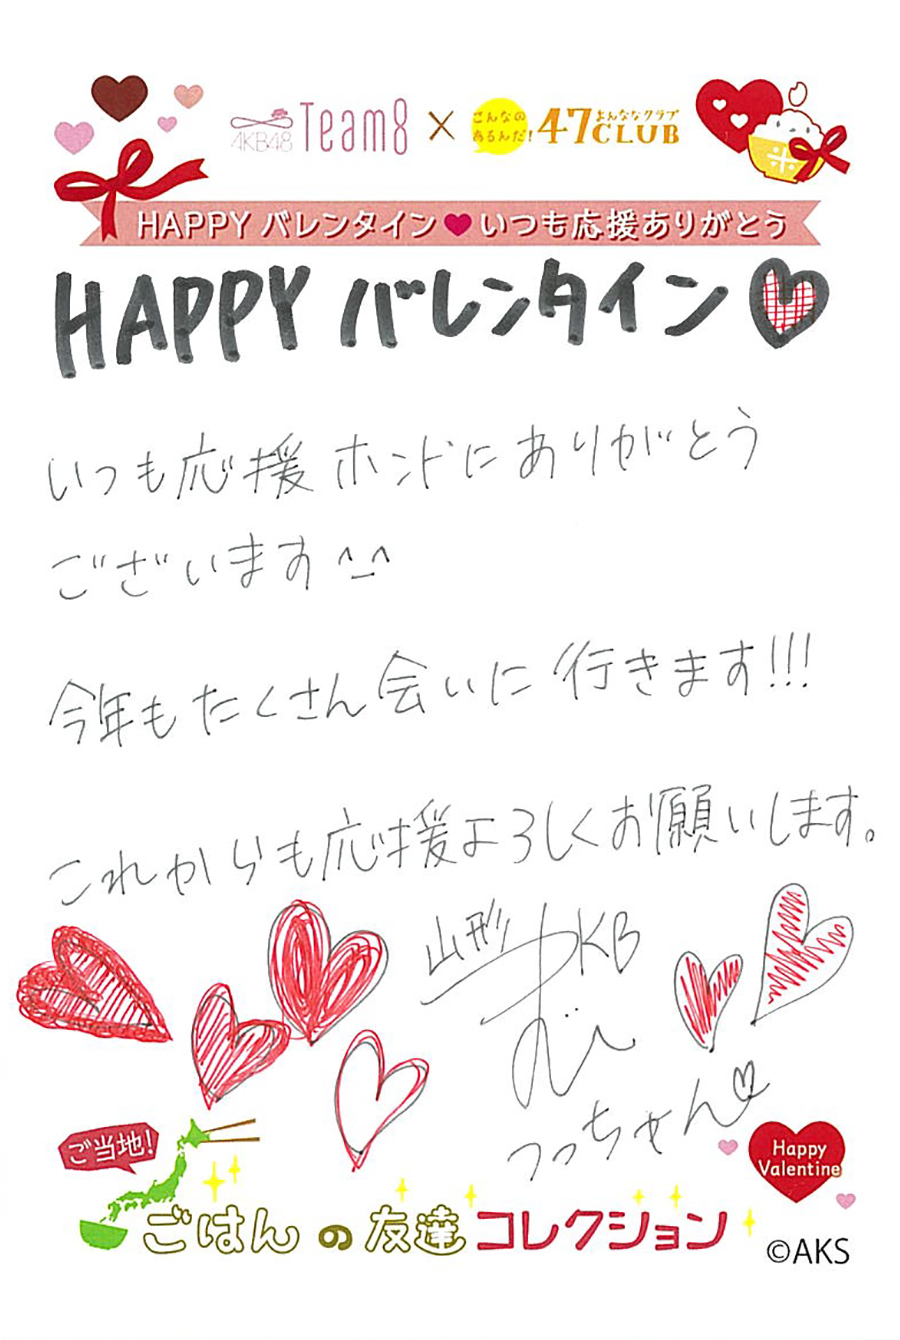 AKB48 Team8 × こんなの あるんだ! 47CLUB よんななクラブ
HAPPY バレンタイン♥いつも応援ありがとう
HAPPY バレンタイン♡
いつも応援ホントにありがとう
ございます^_^
今年もたくさん会いに行きます!!!
これからも応援よろしくお願いします。
山形 AKB
つっちゃん♡
ご当地!
Happy
Valentine
ごはんの友達コレクション
©AKS